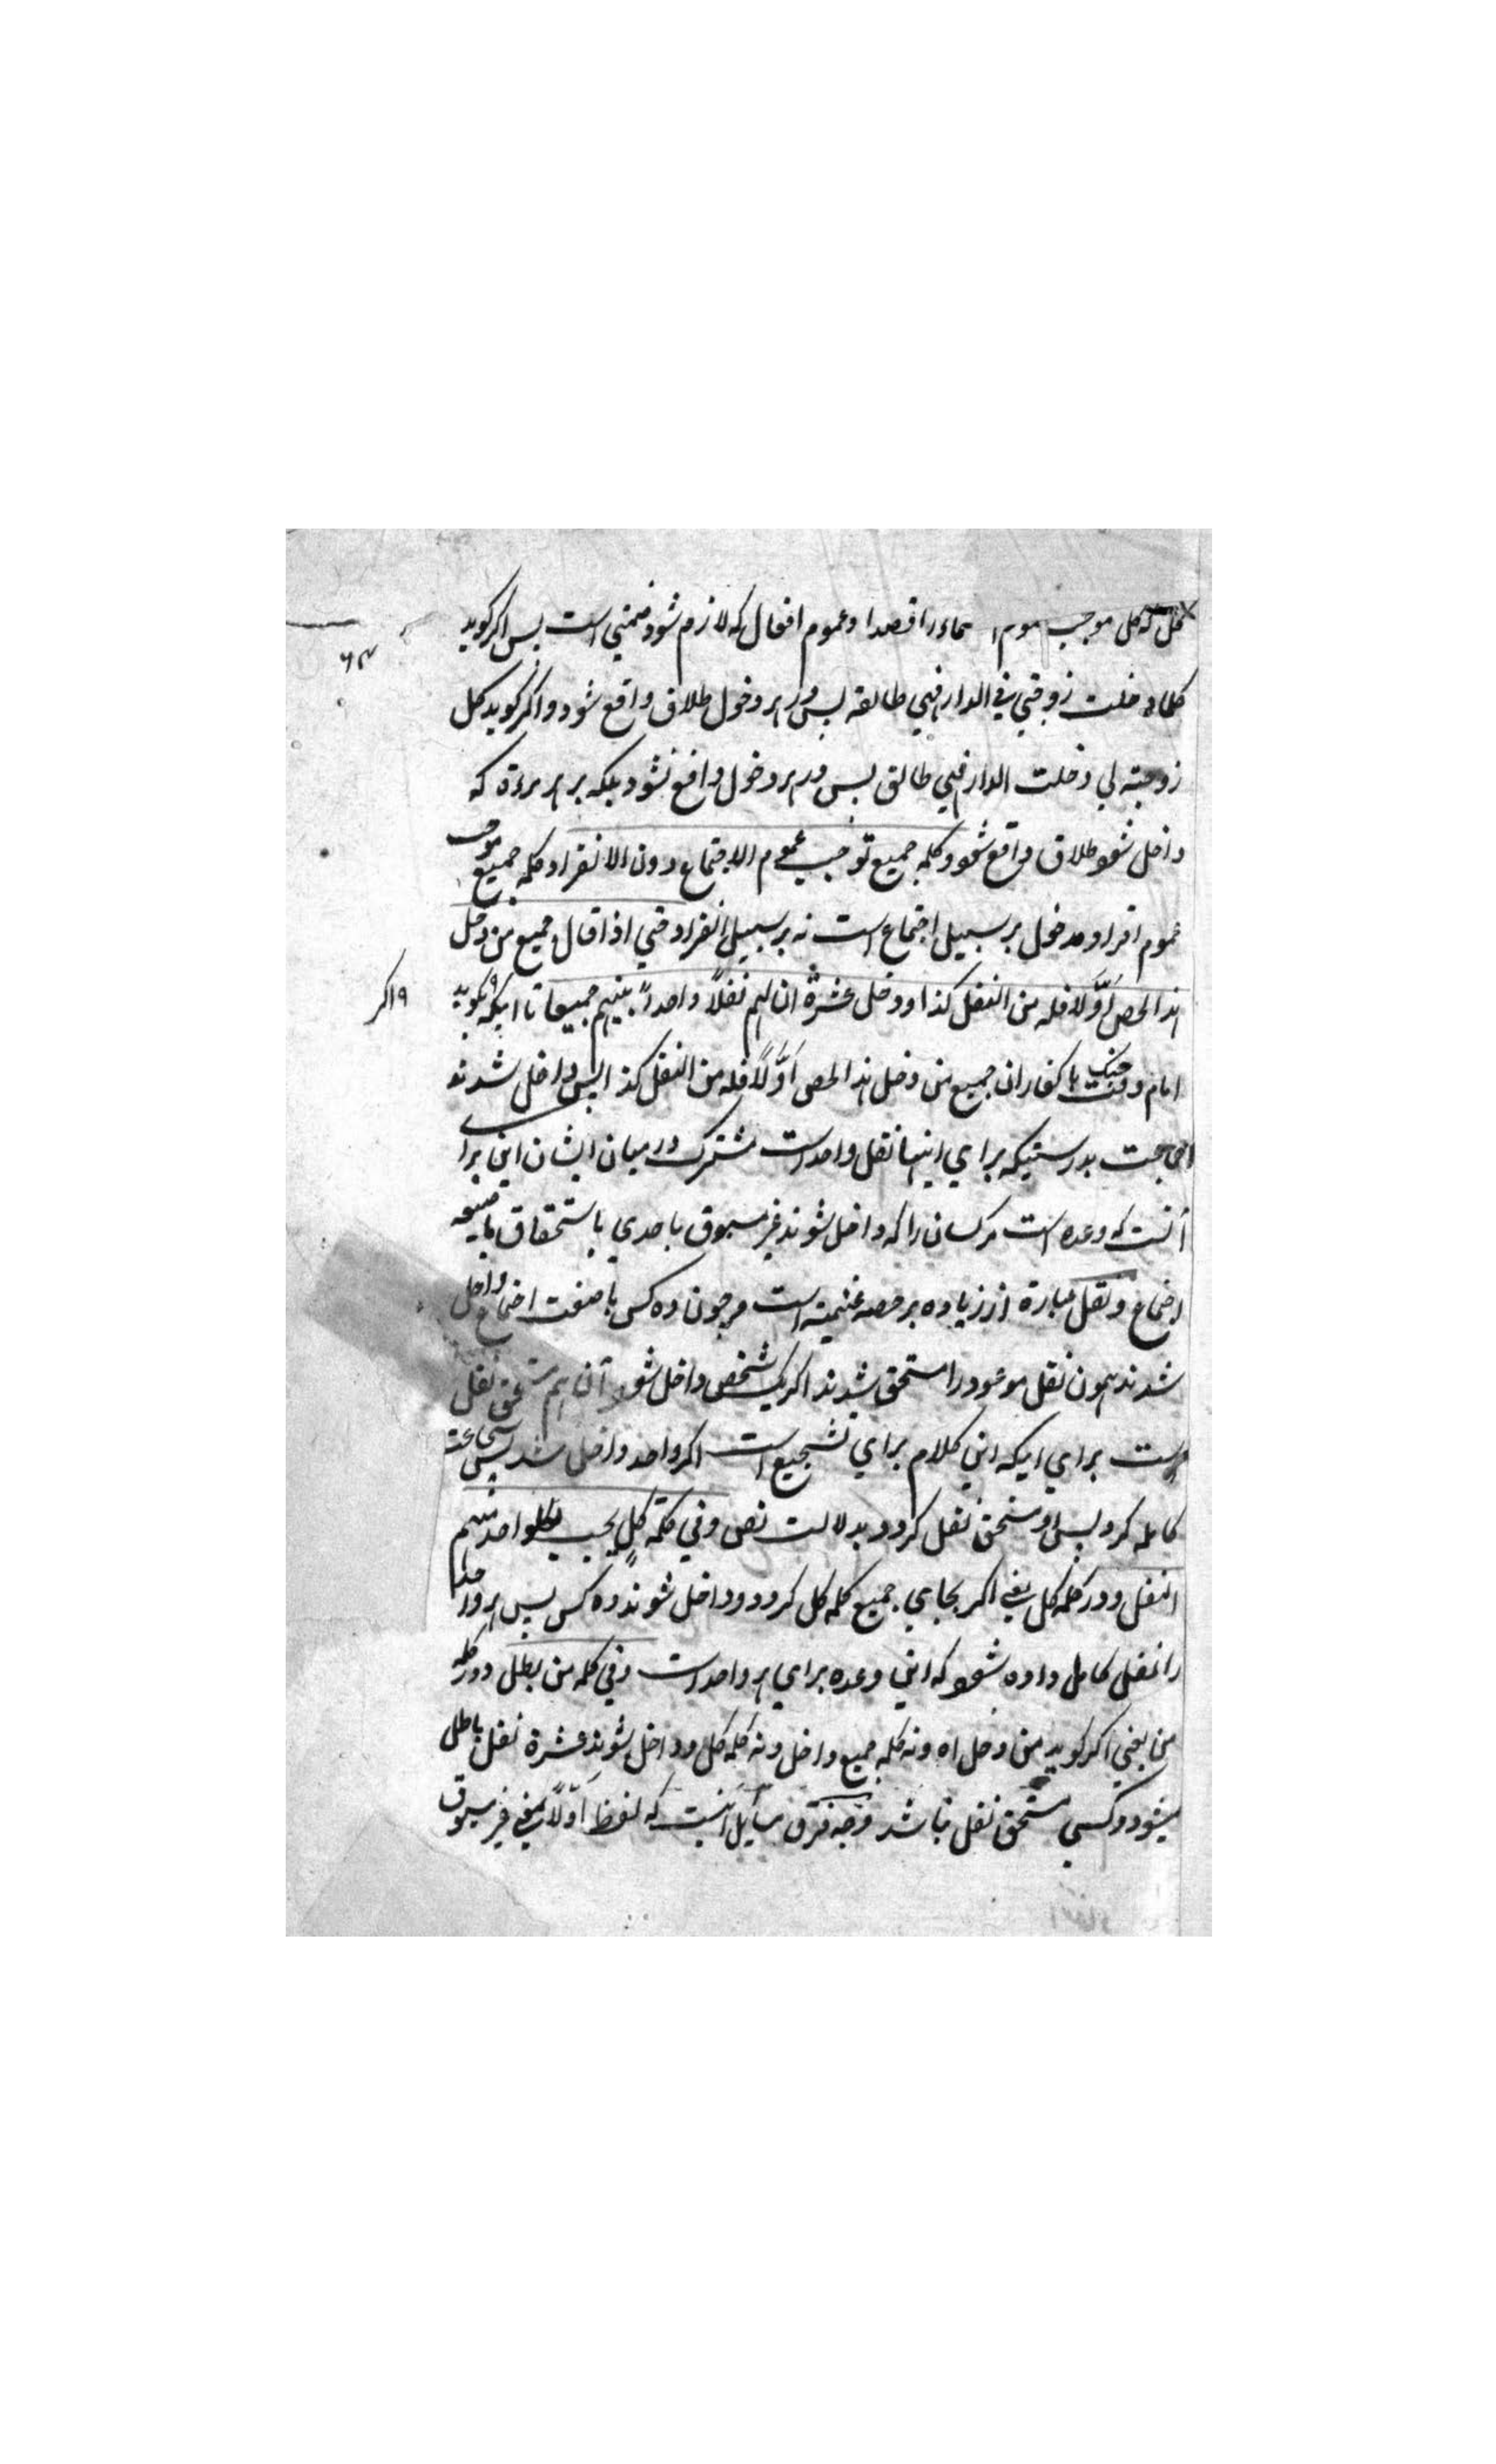 كل كه كل موجب عموم اسماء را قصدا و عموم افعال كه لازم شود ضمني است پس اكر كويد
كلما دخلت زوجتي في الدار فهي طالقة پس در هر دخول طلاق واقع شود و اكر كويد كل
زوجة لي دخلت الدار فهي طالق پس در هر دخول واقع نشود بلكه بر هر مرءة كه
داخل شود طلاق واقع شود و كلمة جميع توجب عموم الاجتماع دون الانفراد كلمه جميع موجب
عموم افراد مدخول بر سبيل اجتماع است نه بر سبيل انفراد حتي اذا قال جميع من دخل
هذا الحصن اوّلا فله من النفل كذا و دخل عشرة ان لهم نفلاً واحداً بينهم جميعا تا اينكه بكويد
اكر
امام وقت جنك با كفار ان جميع من دخل هذا الحصن اوّلاً فله من النفل كذا پس داخل شدند
جماعت بدرستيكه براي اينها نفل واحد است مشترك در ميان ايشان اين براي
آنست كه وعده است مر كسان را كه داخل شوند غير مسبوق باحدي باستحقاق
اجتماع و نفل عبارة از زياده بر حصه غنيمة است هر چون ده كس با صفت اجتماع داخل
شدند همون نفل موعود را مستحق شدند اكر يك شخص داخل شود آن هم مستحق نفل
است براي اينكه اين كلام براي تشجيع است اكر واحد داخل شد پس شجاعت
كامله كرد پس او مستحق نفل كردد بدلالت نص و في كلمة كل يجب لكل واحد منهم
النفل و در كلمه كل يعني اكر بجاي جميع كلمه كل كردد و داخل شوند ده كس پس هر واحد
را نفل كامل داده شود كه اين وعده براي هر واحد است و في كلمة من يبطل و در كلمه
من يعني اكر كويد من دخل اه و نه كلمه جميع داخل و نه كلمه كل و داخل شوند عشرة نفل باطل
ميشود و كسي مستحق نفل نباشد وجه فرق مسايل آنست كه لفظ اوّلاً بمعني غير مسبوق